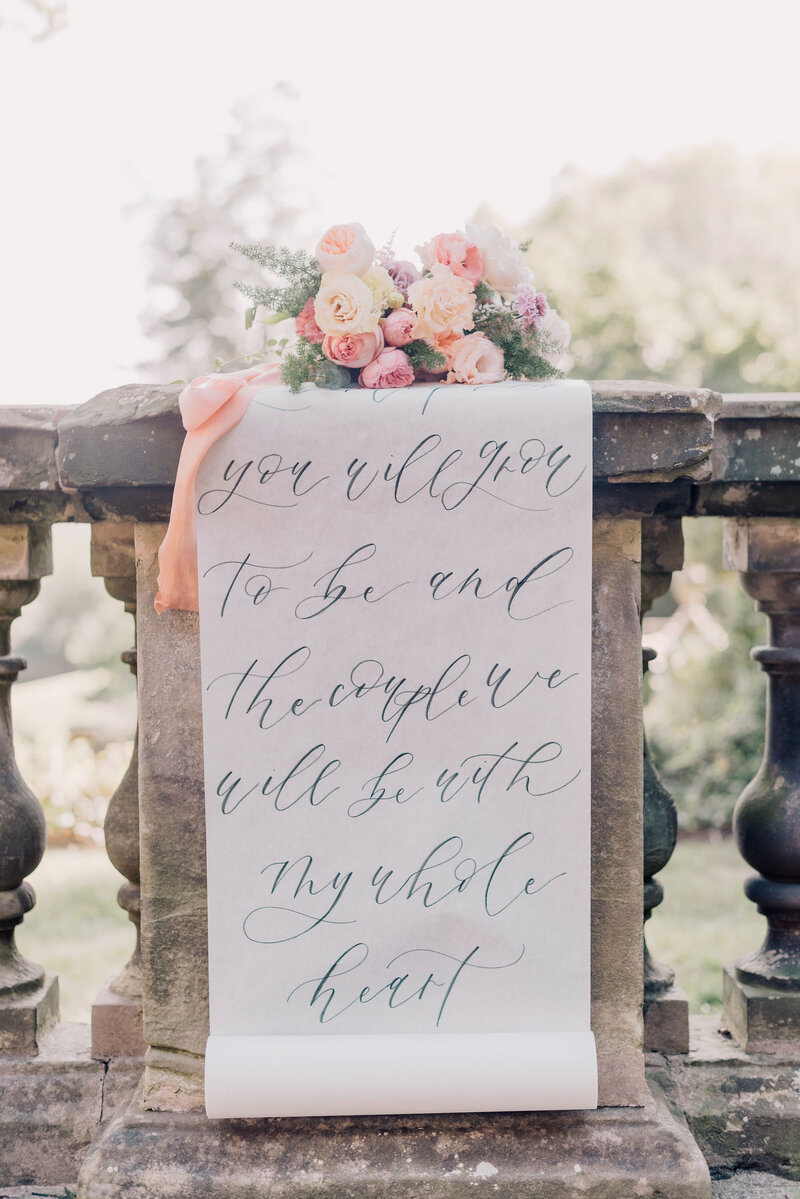 you will grow
to be and
the couple we
will be with
my whole
heart